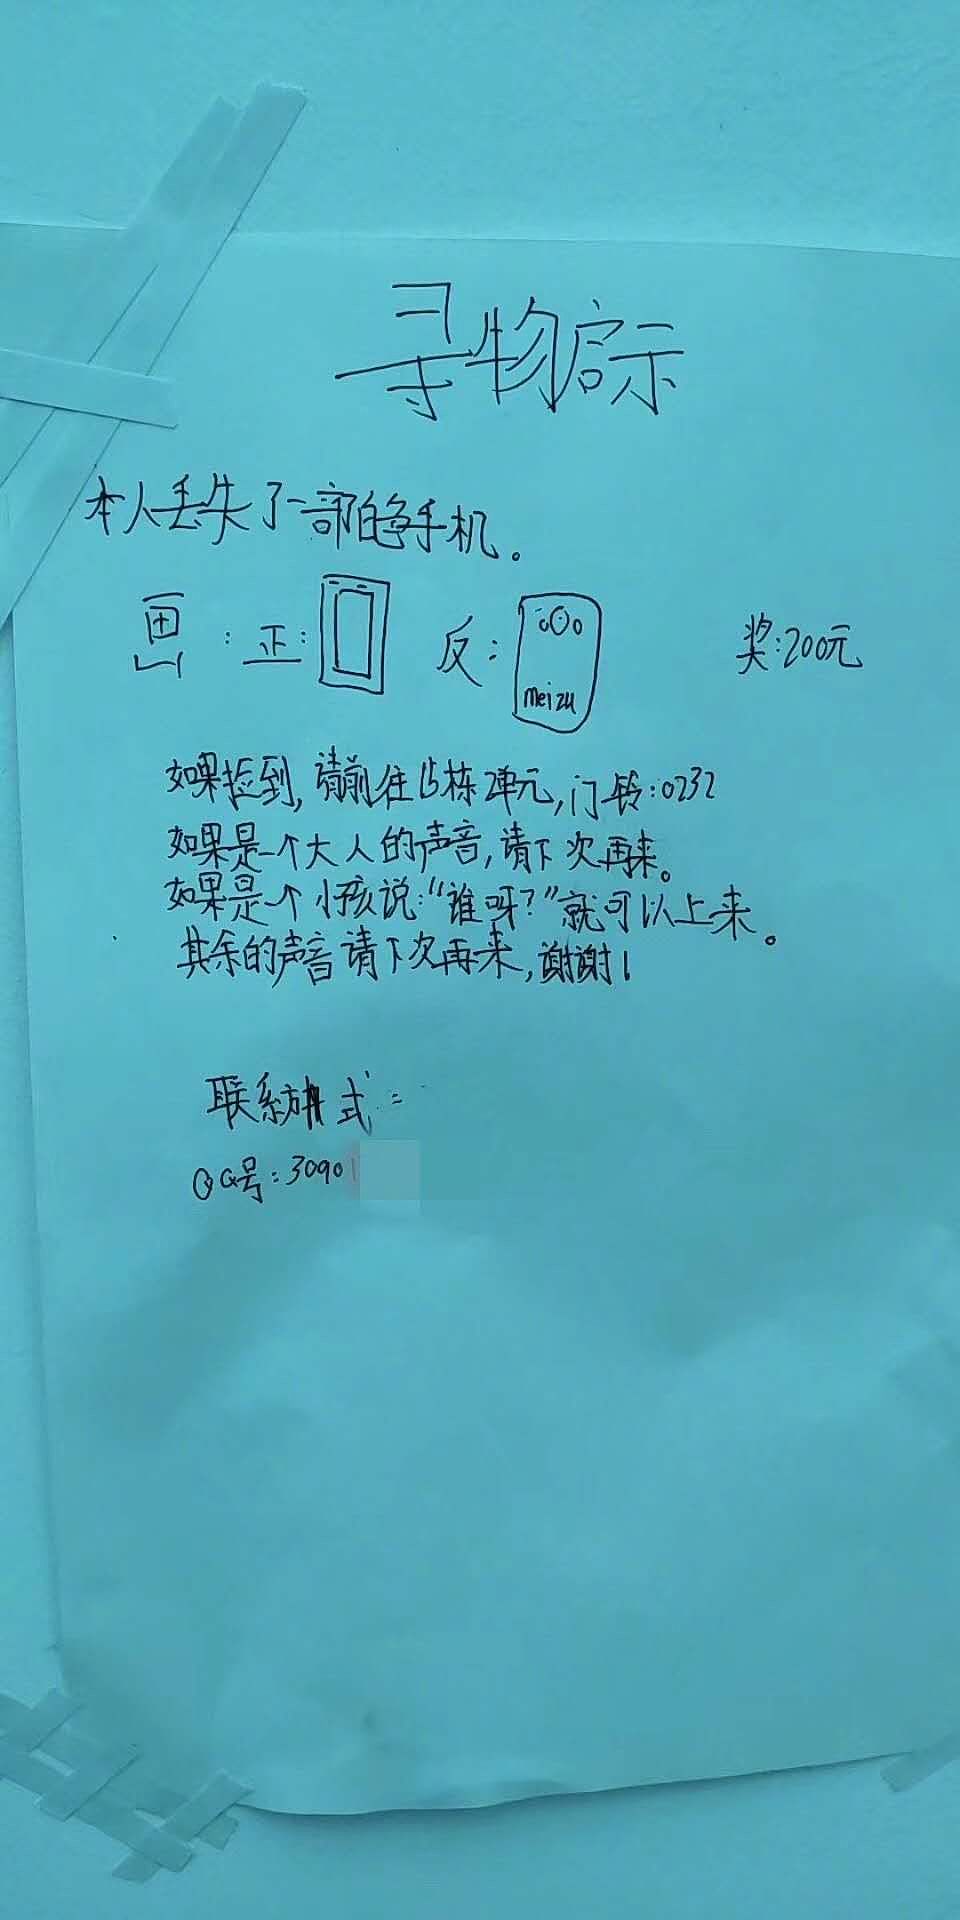 寻物启示
本人丢失了一部白色手机。
画:正: 反: 奖:200元
meizu
如果捡到,请前往15栋2单元,门铃:0232
如果是一个大人的声音,请下次再来。
如果是个小孩说:“谁呀?”就可以上来。
其余的声音请下次再来,谢谢!
联系方式:
QQ号:30901